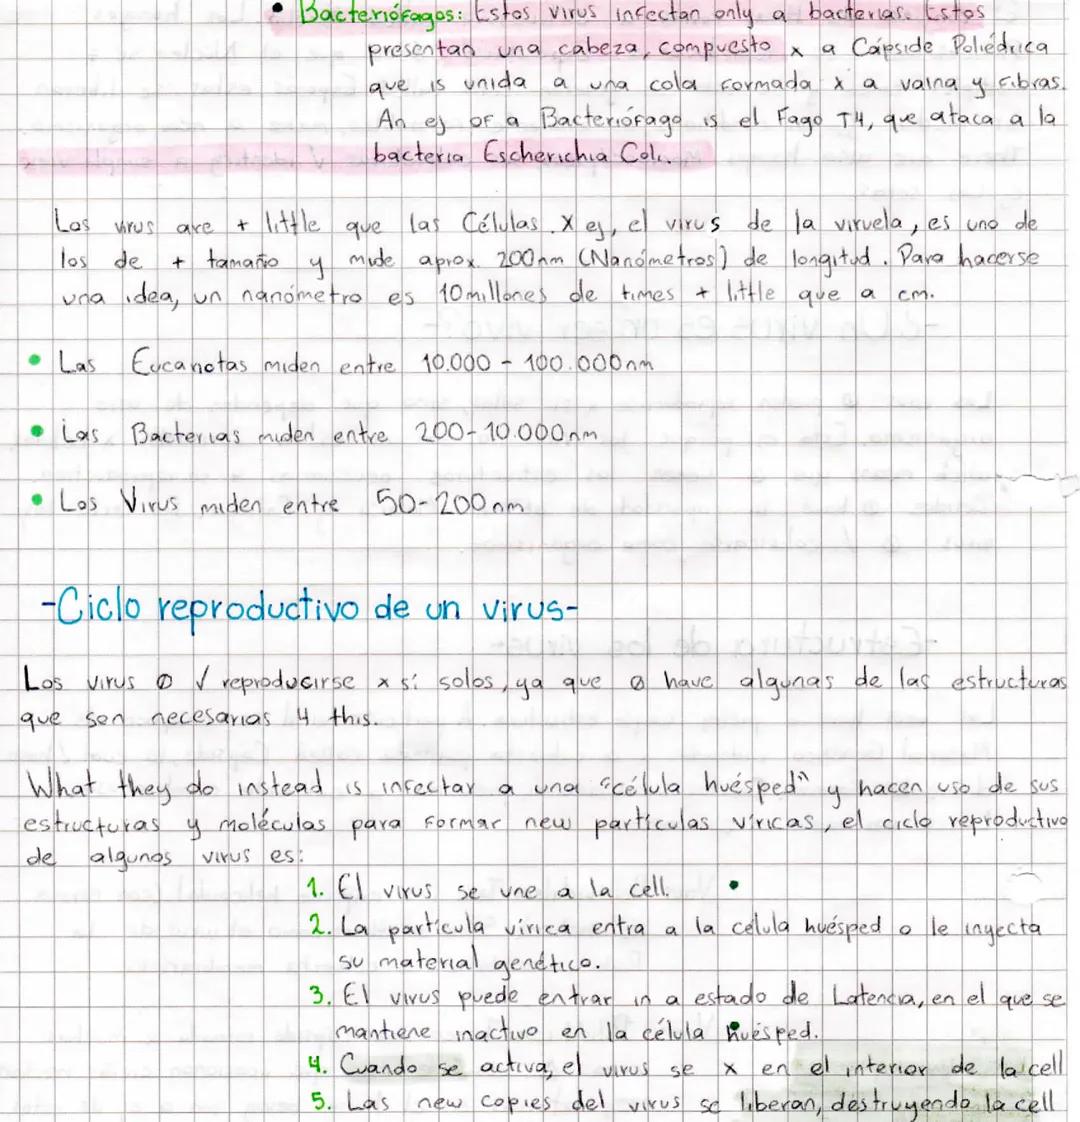 • Bacteriófagos: Estos virus infectan only a bacterias. Estos
presentan una cabeza, compuesto x a Cápside Poliédrica
que is unida a una cola formada x a vaina y fibras.
An ej of a Bacteriófago is el Fago T4, que ataca a la
bacteria Escherichia Coli.
Los virus are + little que las Células. X ej, el virus de la viruela, es uno de
los de + tamaño y mide aprox. 200nm (Nanómetros) de longitud. Para hacerse
una idea, un nanómetro es 10millones de times + little que a cm.
• Las Eucariotas miden entre 10.000 - 100.000nm
• Las Bacterias miden entre 200-10.000nm
• Los Virus miden entre 50-200nm
-Ciclo reproductivo de un virus-
Los virus Ø √ reproducirse x sí solos, ya que Ø have algunas de las estructuras
que son necesarias 4 this.
What they do instead is infectar a una "célula huésped" y hacen uso de sus
estructuras y moléculas para formar new partículas víricas, el ciclo reproductivo
de algunos virus es:
1. El virus se une a la cell.
2. La partícula vírica entra a la célula huésped o le inyecta
su material genético.
3. El virus puede entrar in a estado de Latencia, en el que se
mantiene inactivo en la célula huésped.
4. Cuando se activa, el virus se x en el interior de la cell
5. Las new copies del virus se liberan, destruyendo la cell